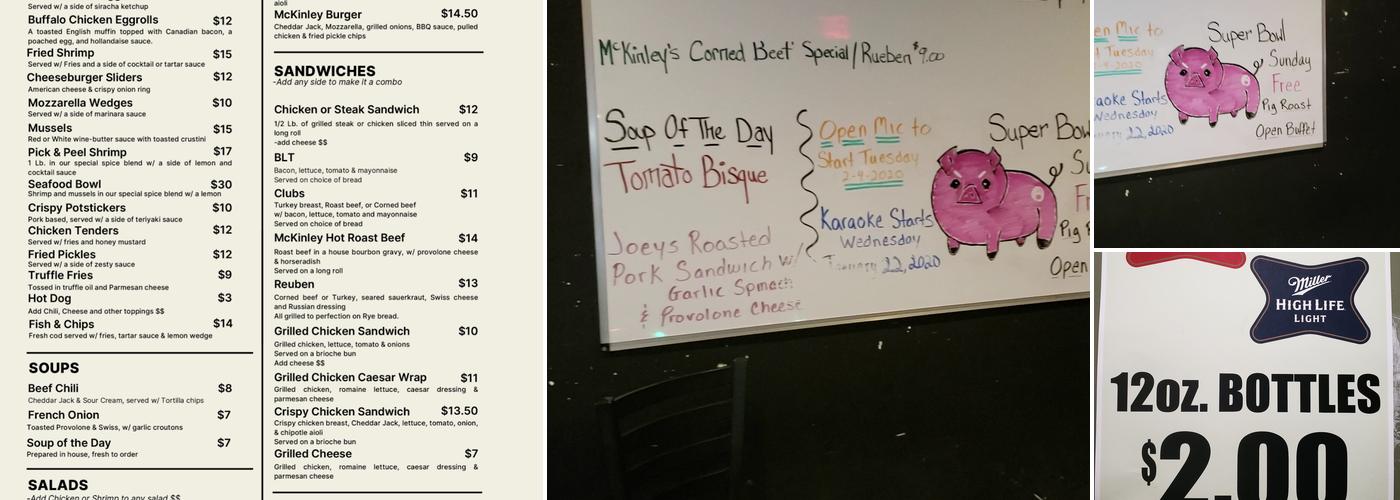 Served w/ a side of siracha ketchup
Buffalo Chicken Eggrolls $12
A toasted English muffin topped with Canadian bacon, a
poached egg, and hollandaise sauce.
Fried Shrimp $15
Served w/ Fries and a side of cocktail or tartar sauce
Cheeseburger Sliders $12
American cheese & crispy onion ring
Mozzarella Wedges $10
Served w/ a side of marinara sauce
Mussels $15
Red or White wine-butter sauce with toasted crustini
Pick & Peel Shrimp $17
1 Lb. in our special spice blend w/ a side of lemon and
cocktail sauce
Seafood Bowl $30
Shrimp and mussels in our special spice blend w/ a lemon
Crispy Potstickers $10
Pork based, served w/ a side of teriyaki sauce
Chicken Tenders $12
Served w/ fries and honey mustard
Fried Pickles $12
Served w/ a side of zesty sauce
Truffle Fries $9
Tossed in truffle oil and Parmesan cheese
Hot Dog $3
Add Chili, Cheese and other toppings $$
Fish & Chips $14
Fresh cod served w/ fries, tartar sauce & lemon wedge
SOUPS
Beef Chili $8
Cheddar Jack & Sour Cream, served w/ Tortilla chips
French Onion $7
Toasted Provolone & Swiss, w/ garlic croutons
Soup of the Day $7
Prepared in house, fresh to order
SALADS
-Add Chicken or Shrimp to any salad $$
aioli
McKinley Burger $14.50
Cheddar Jack, Mozzarella, grilled onions, BBQ sauce, pulled
chicken & fried pickle chips
SANDWICHES
-Add any side to make it a combo
Chicken or Steak Sandwich $12
1/2 Lb. of grilled steak or chicken sliced thin served on a
long roll
-add cheese $$
BLT $9
Bacon, lettuce, tomato & mayonnaise
Served on choice of bread
Clubs $11
Turkey breast, Roast beef, or Corned beef
w/ bacon, lettuce, tomato and mayonnaise
Served on choice of bread
McKinley Hot Roast Beef $14
Roast beef in a house bourbon gravy, w/ provolone cheese
& horseradish
Served on a long roll
Reuben $13
Corned beef or Turkey, seared sauerkraut, Swiss cheese
and Russian dressing
All grilled to perfection on Rye bread.
Grilled Chicken Sandwich $10
Grilled chicken, lettuce, tomato & onions
Served on a brioche bun
Add cheese $$
Grilled Chicken Caesar Wrap $11
Grilled chicken, romaine lettuce, caesar dressing &
parmesan cheese
Crispy Chicken Sandwich $13.50
Crispy chicken breast, Cheddar Jack, lettuce, tomato, onion,
& chipotle aioli
Served on a brioche bun
Grilled Cheese $7
Grilled chicken, romaine lettuce, caesar dressing &
parmesan cheese
McKinley's Corned Beef Special/Rueben $9.00
Soup Of The Day
Tomato Bisque
Joeys Roasted
Pork Sandwich w/
Garlic Spinach
& Provolone Cheese
Open Mic to
Start Tuesday
2-4-2020
Karaoke Starts
Wednesday
January 22, 2020
Super Bow
Su
Fr
Pig
Open
en Mic to
t Tuesday
-4-2020
aoke Starts
Wednesday
22, 2020
Super Bowl
Sunday
Free
Pig Roast
Open Buffet
Miller
HIGH LIFE
LIGHT
12oz. BOTTLES
$2.00